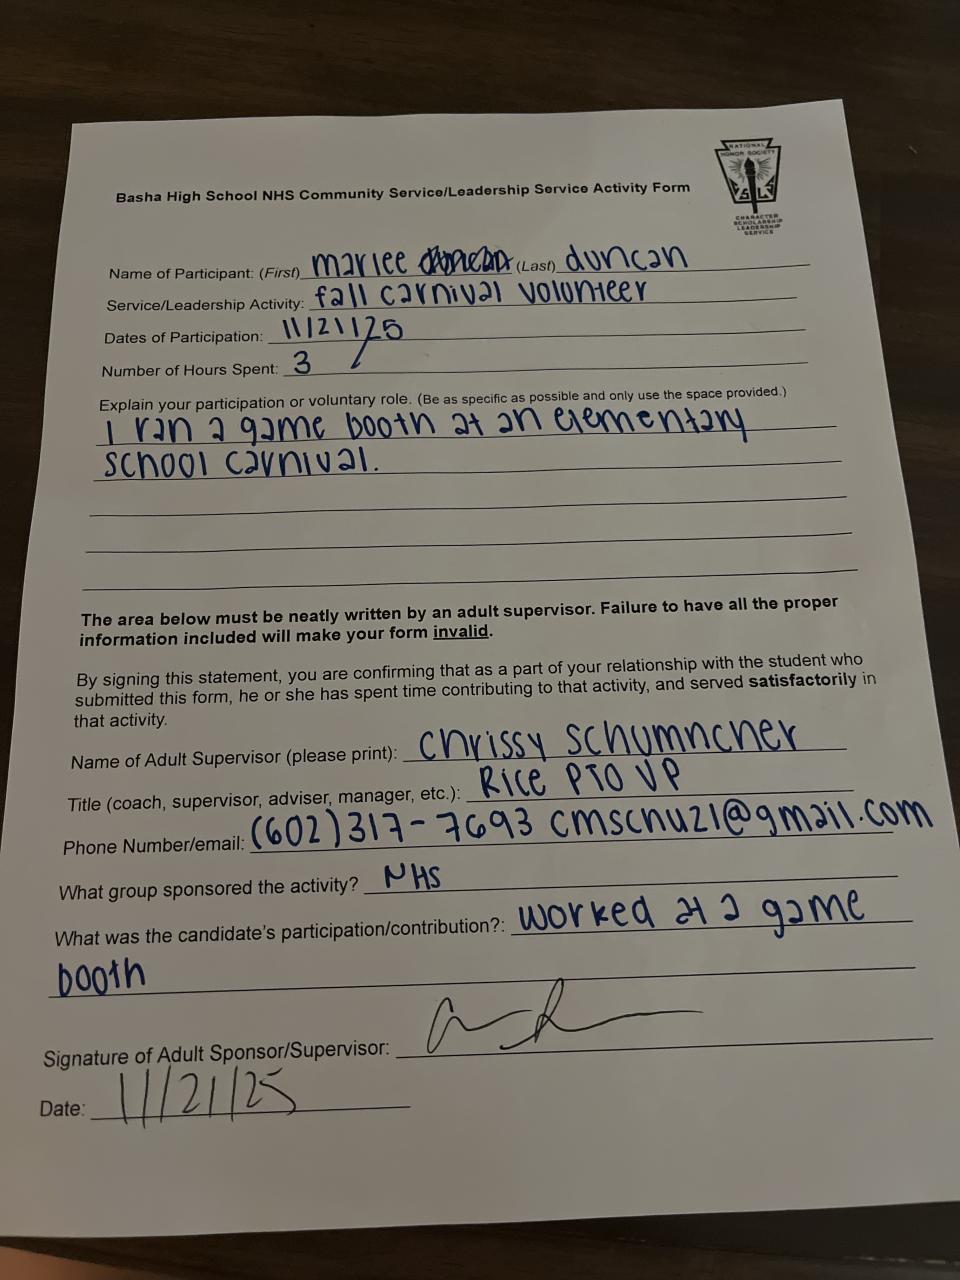 NATIONAL
HONOR SOCIETY
CHARACTER
SCHOLARSHIP
LEADERSHIP
SERVICE
Basha High School NHS Community Service/Leadership Service Activity Form
Name of Participant: (First) marlee duncan (Last) duncan
Service/Leadership Activity: fall carnival volunteer
Dates of Participation: 11/21/25
Number of Hours Spent: 3
Explain your participation or voluntary role. (Be as specific as possible and only use the space provided.)
I ran a game booth at an elementary
school carnival.
The area below must be neatly written by an adult supervisor. Failure to have all the proper
information included will make your form invalid.
By signing this statement, you are confirming that as a part of your relationship with the student who
submitted this form, he or she has spent time contributing to that activity, and served satisfactorily in
that activity.
Name of Adult Supervisor (please print): Chrissy Schumncher
Title (coach, supervisor, adviser, manager, etc.): Rice PTO VP
Phone Number/email: (602)317-7693 cmschuz1@gmail.com
What group sponsored the activity? NHS
What was the candidate's participation/contribution?: worked at a game
booth
Signature of Adult Sponsor/Supervisor:
Date: 11/21/25